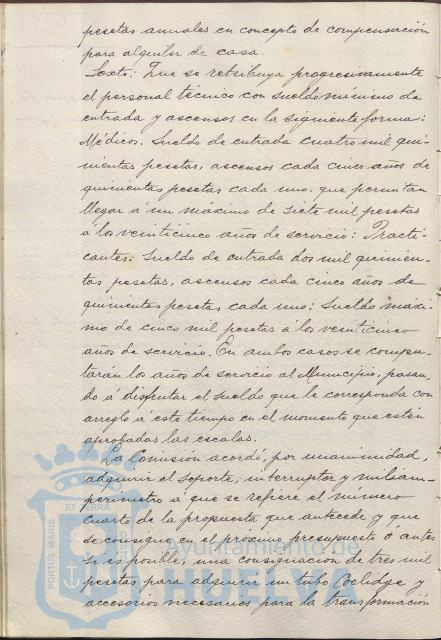 pesetas anuales en concepto de compensación
para alquiler de casa.
Sexto: Que se retribuya progresivamente
el personal técnico con sueldo mínimo de
entrada y ascensos en la siguiente forma:
Médicos. Sueldo de entrada cuatro mil qui-
nientas pesetas, ascensos cada cinco años de
quinientas pesetas cada uno, que permitan
llegar á un máximo de siete mil pesetas
á los veinticinco años de servicio: Practi-
cantes: Sueldo de entrada dos mil quinien-
tas pesetas, ascensos cada cinco años de
quinientas pesetas cada uno; Sueldo máxi-
mo de cinco mil pesetas á los veinticinco
años de servicio. En ambos casos se compu-
tarán los años de servicio al Municipio, pasan-
do á disfrutar el sueldo que le corresponda con
arreglo á este tiempo en el momento que estén
aprobadas las escalas.
La Comisión acordó, por unanimidad,
adquirir el soporte, interruptor y miliam-
perímetro á que se refiere el número
cuarto de la propuesta que antecede y que
se consigne en el próximo presupuesto ó antes
si es posible, una consignación de tres mil
pesetas para adquirir un tubo Coolidge y
accesorios necesarios para la transformación
PORTUS MARIS
ET TERRAE
Ayuntamiento de
HUELVA